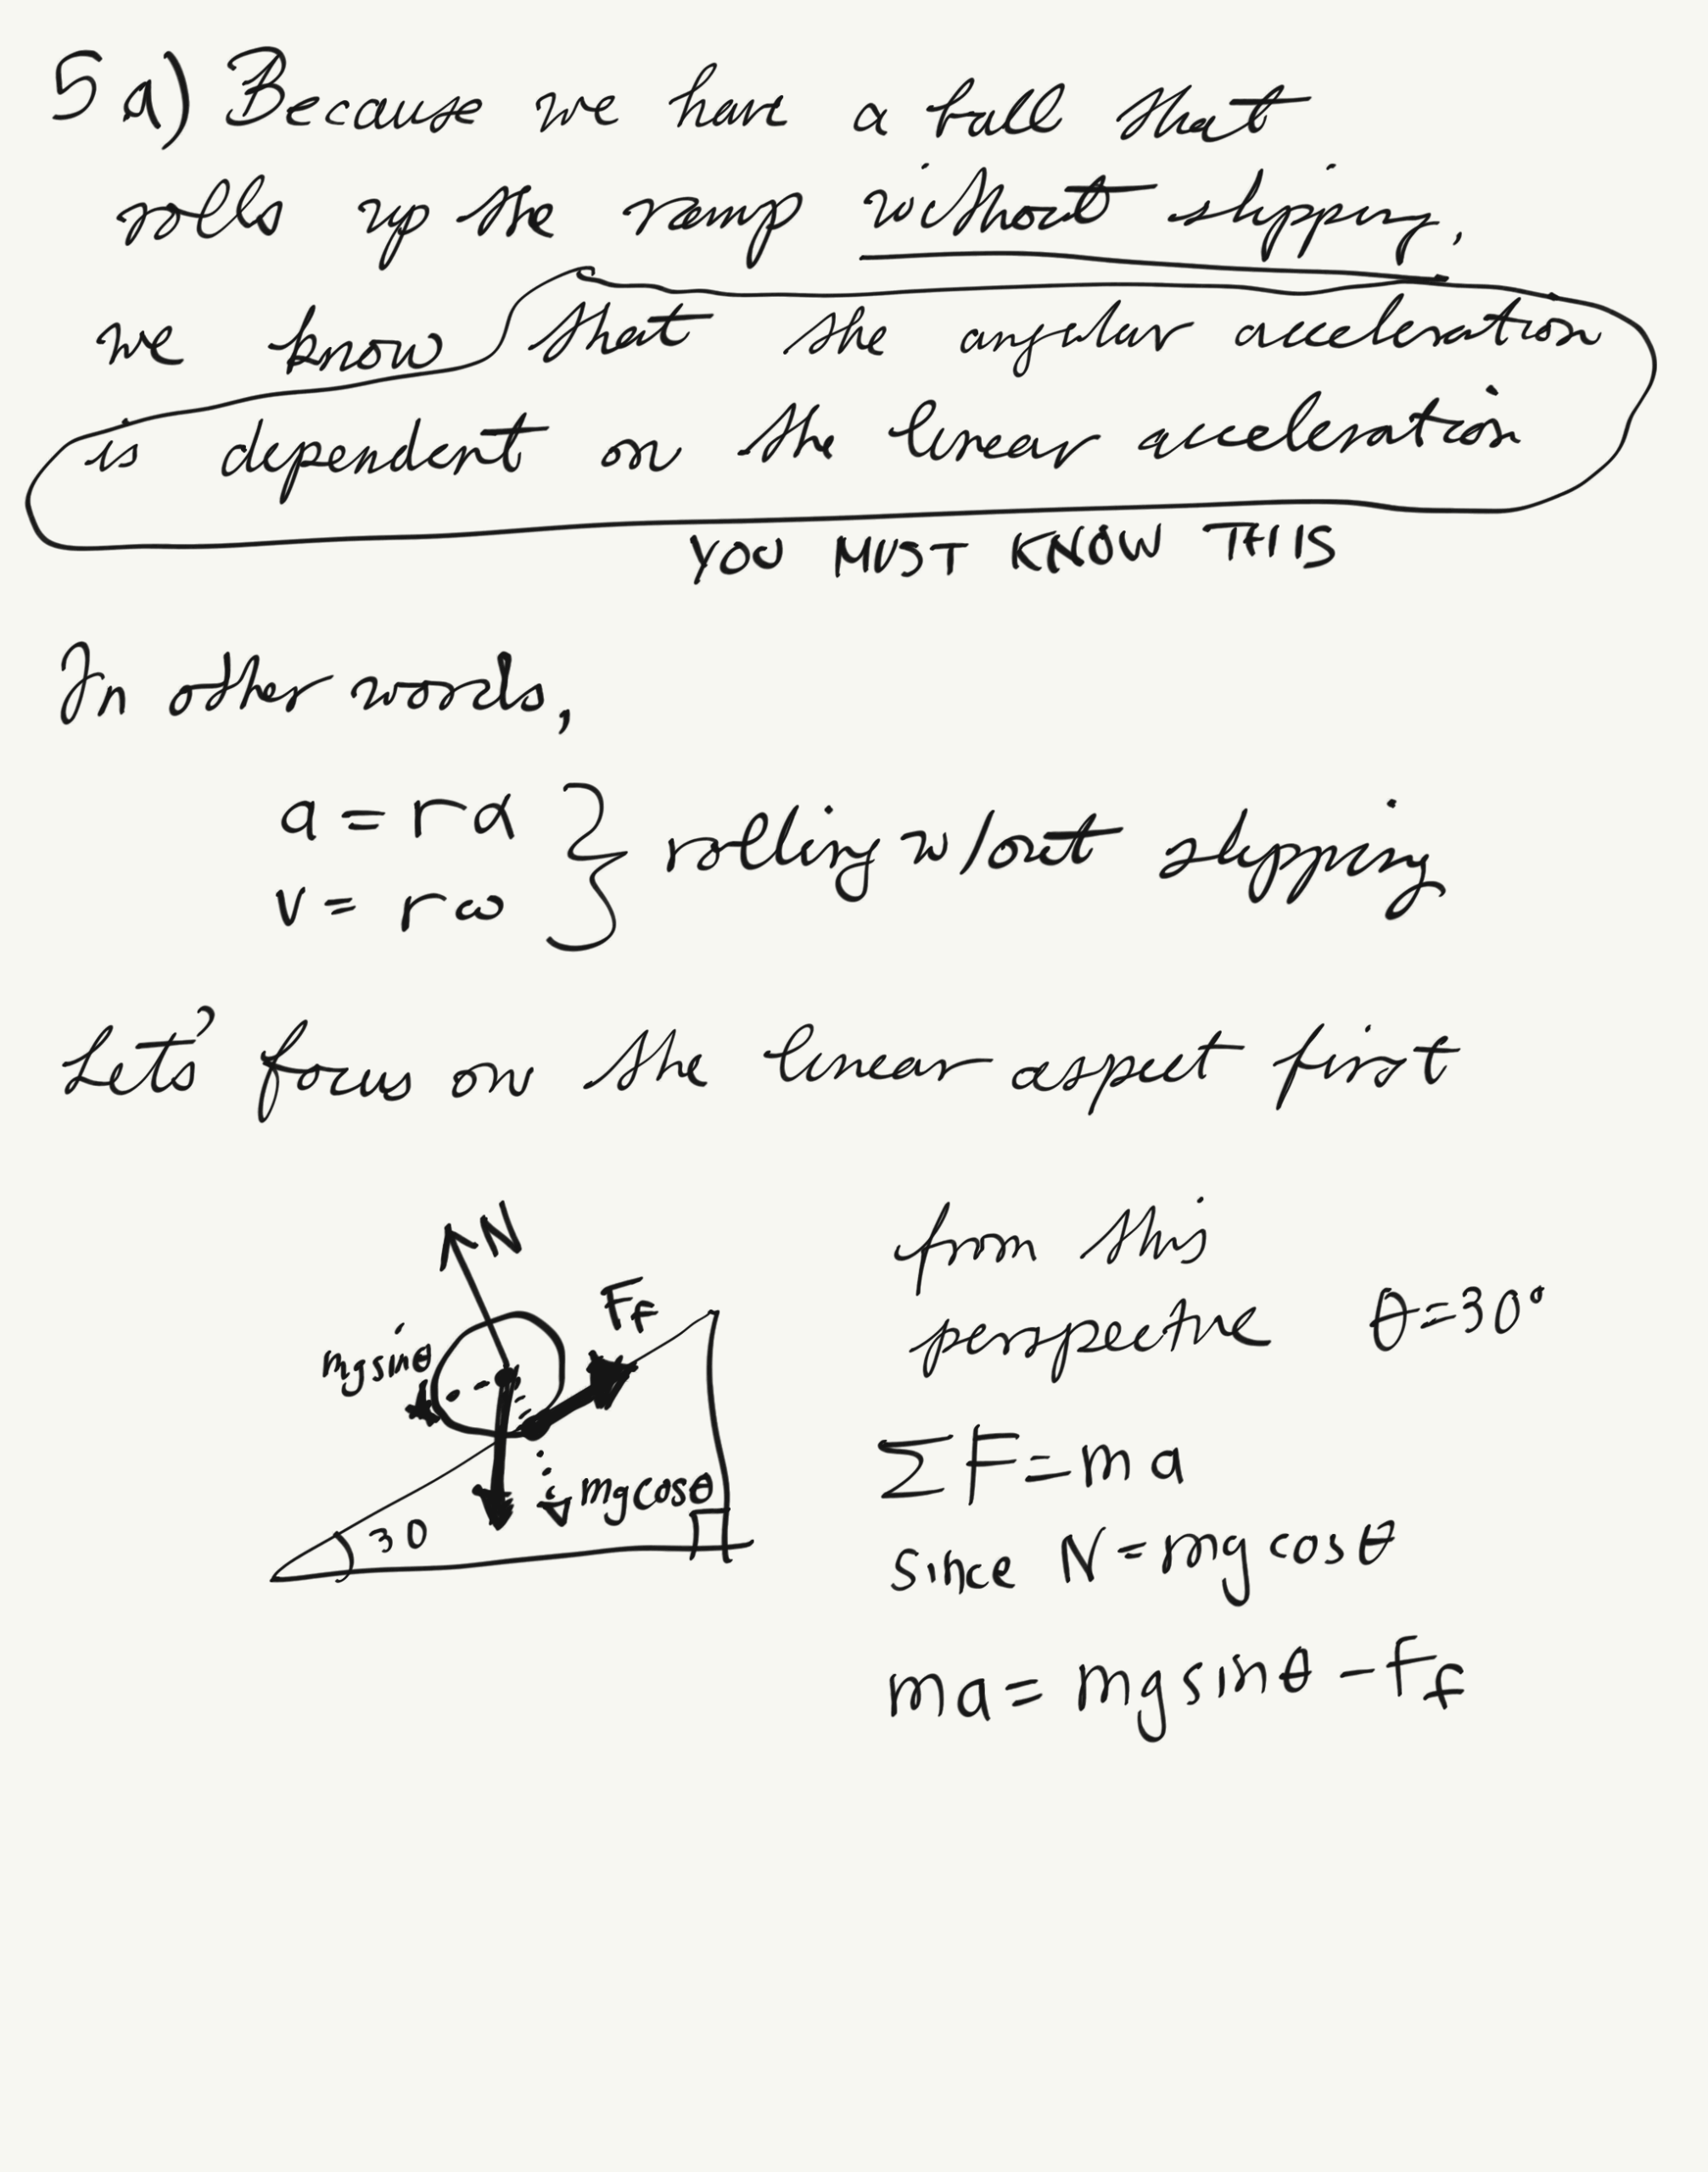 5 a) Because we have a ball that
rolls up the ramp without slipping,
we know that the angular acceleration
is dependent on the linear acceleration
YOU MUST KNOW THIS
In other words,
a = rα
v = rω
} rolling w/out slipping
Let's focus on the linear aspect first
N
Ff
mgsinθ
mgcosθ
30
from this
perspective θ=30°
ΣF=ma
since N=mgcosθ
ma= mgsinθ -Ff